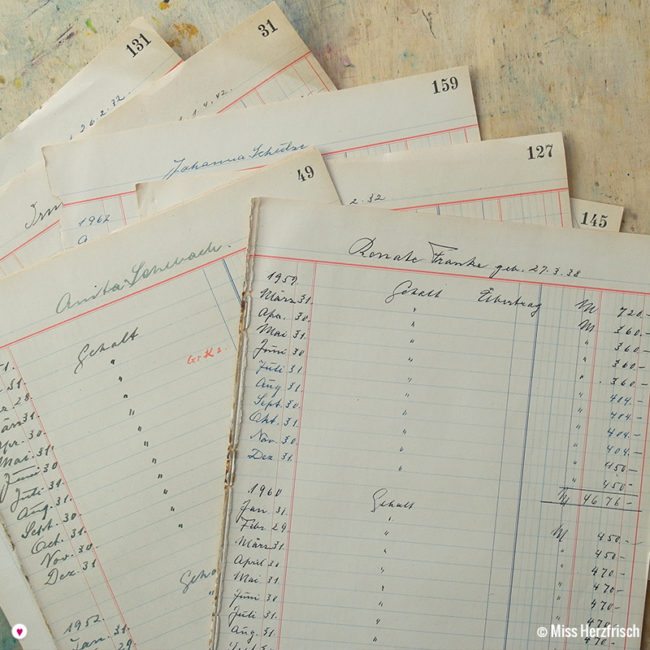 131
31
159
127
145
49
26.2.32
1.4.42
Johanna Schulze
2.32
1962
Anita
Gehalt
"
Juni 30
Juli 31.
Aug. 31.
Sept. 30
Oct. 31.
Nov. 30
Dez 31.
1952.
Jan. 31.
Renate Franke geb. 27.3.38
1959
März 31. Gehalt Übertrag M 720.-
Apr. 30. " M 360.-
Mai 31. " " 360.-
Juni 30 " " 360.-
Juli 31. " " 360.-
Aug. 31. " " 404.-
Sept. 30. " " 404.-
Okt. 31. " " 404.-
Nov. 30 " " 404.-
Dez. 31. " " 450.-
" 450.-
M 4676.-
1960 Gehalt
Jan 31. " M 450.-
Febr. 29. " " 450.-
März 31 " " 470.-
April 30 " " 470.-
Mai 31. " " 470.-
Juni 30 " " 470.-
Juli 31. " " 470.-
Aug. 31. "
© Miss Herzfrisch